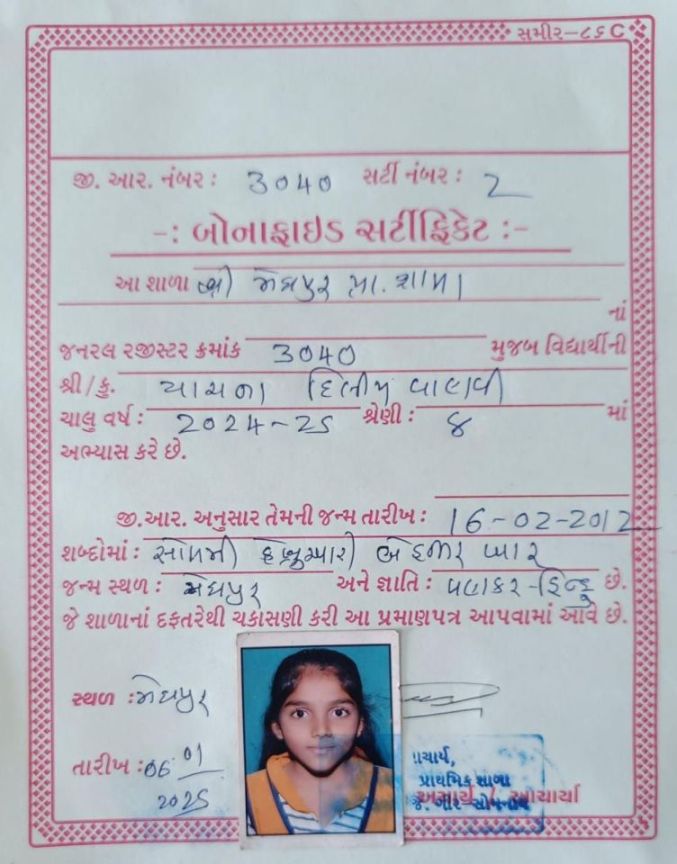 સમીર–૮૬ C
જી. આર. નંબર : 3040 સર્ટી નંબર : 2
-: બોનાફાઇડ સર્ટીફિકેટ :-
આ શાળા શ્રી મેઘપુર પ્રા. શાળા
નાં
જનરલ રજીસ્ટર ક્રમાંક 3040 મુજબ વિદ્યાર્થીની
શ્રી / કુ. યાચના દિલીપ વાળવી
ચાલુ વર્ષ : 2024-25 શ્રેણી : ૮ માં
અભ્યાસ કરે છે.
જી.આર. અનુસાર તેમની જન્મ તારીખ : 16-02-2012
શબ્દોમાં : સોળમી ફેબ્રુઆરી બે હજાર બાર
જન્મ સ્થળ : મેઘપુર અને જ્ઞાતિ : વણકર-હિન્દુ છે.
જે શાળાનાં દફતરેથી ચકાસણી કરી આ પ્રમાણપત્ર આપવામાં આવે છે.
સ્થળ : મેઘપુર
તારીખ : 06 01
2025
ાચાર્ય,
પ્રાથમિક શાળા
જી. ગીર સોમનાથ
આચાર્ય / ઓચાર્યા